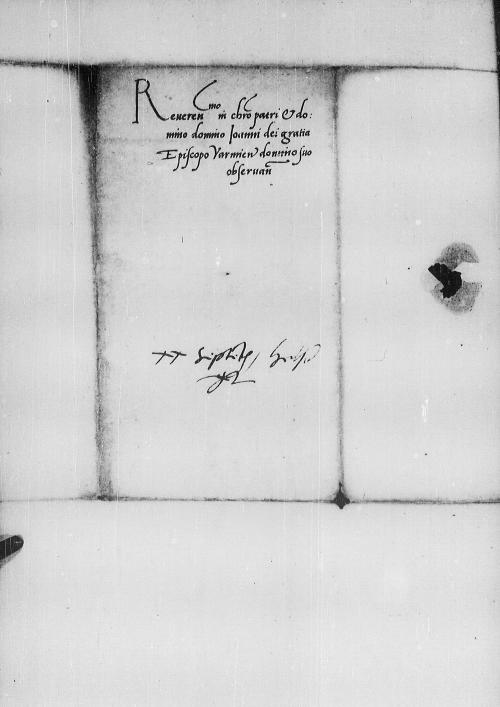 Reveren mo in chro patri & do:
mino domino Ioanni dei gratia
Episcopo Varmien domino suo
observan